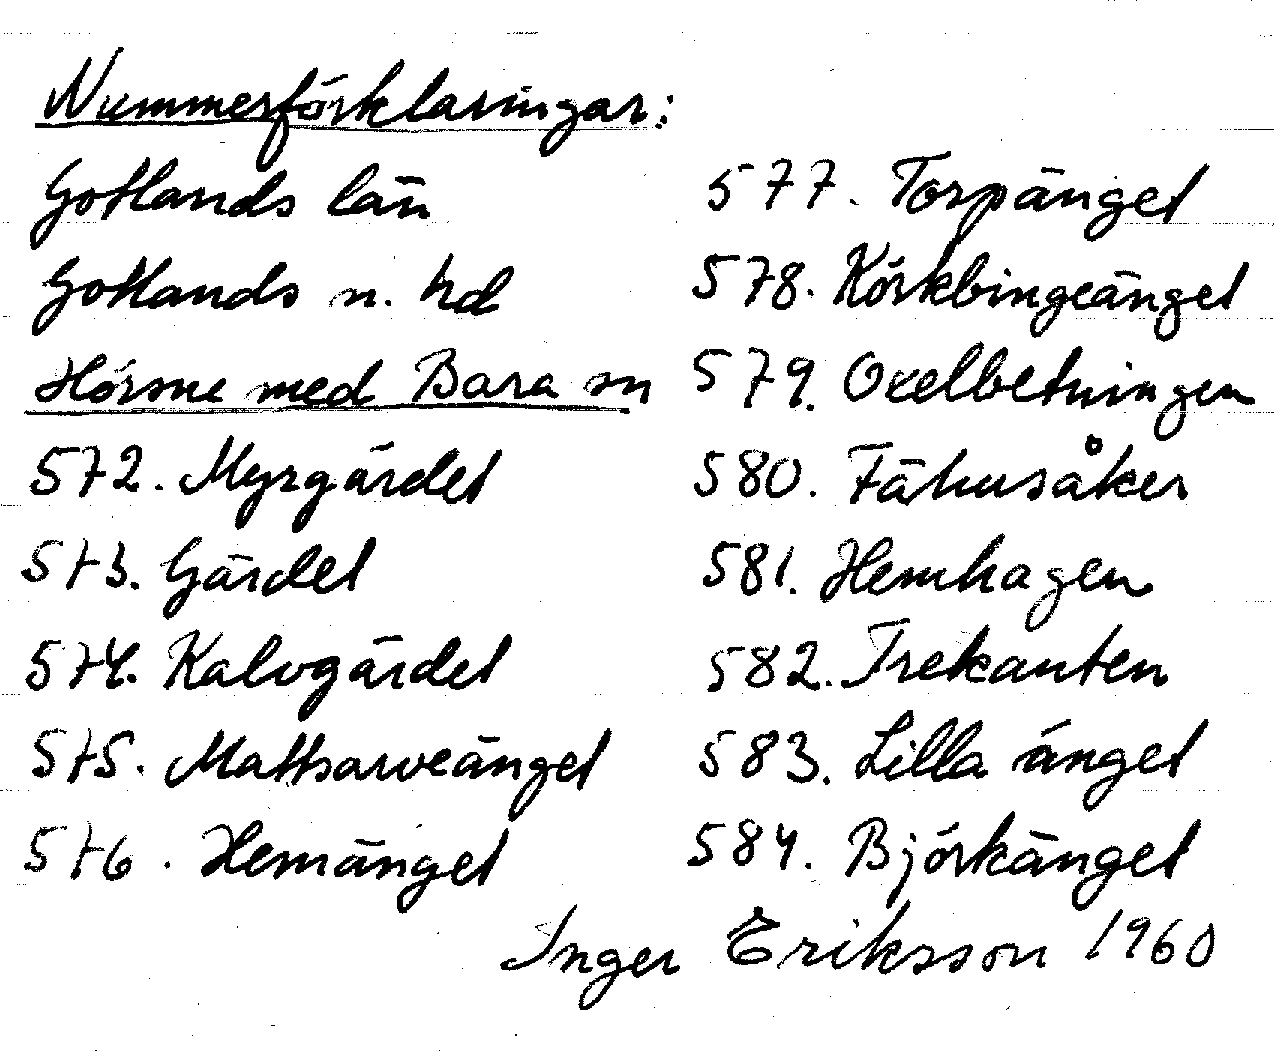 Nummerförklaringar:
Gotlands län
Gotlands n. hd
Hörsne med Bara sn
572. Myrgärdet
573. Gärdet
574. Kalvgärdet
575. Mattsarveänget
576. Hemänget
577. Torpänget
578. Körkbingeänget
579. Oxelbetningen
580. Fähusåker
581. Hemhagen
582. Trekanten
583. Lilla änget
584. Björkänget
Inger Eriksson 1960